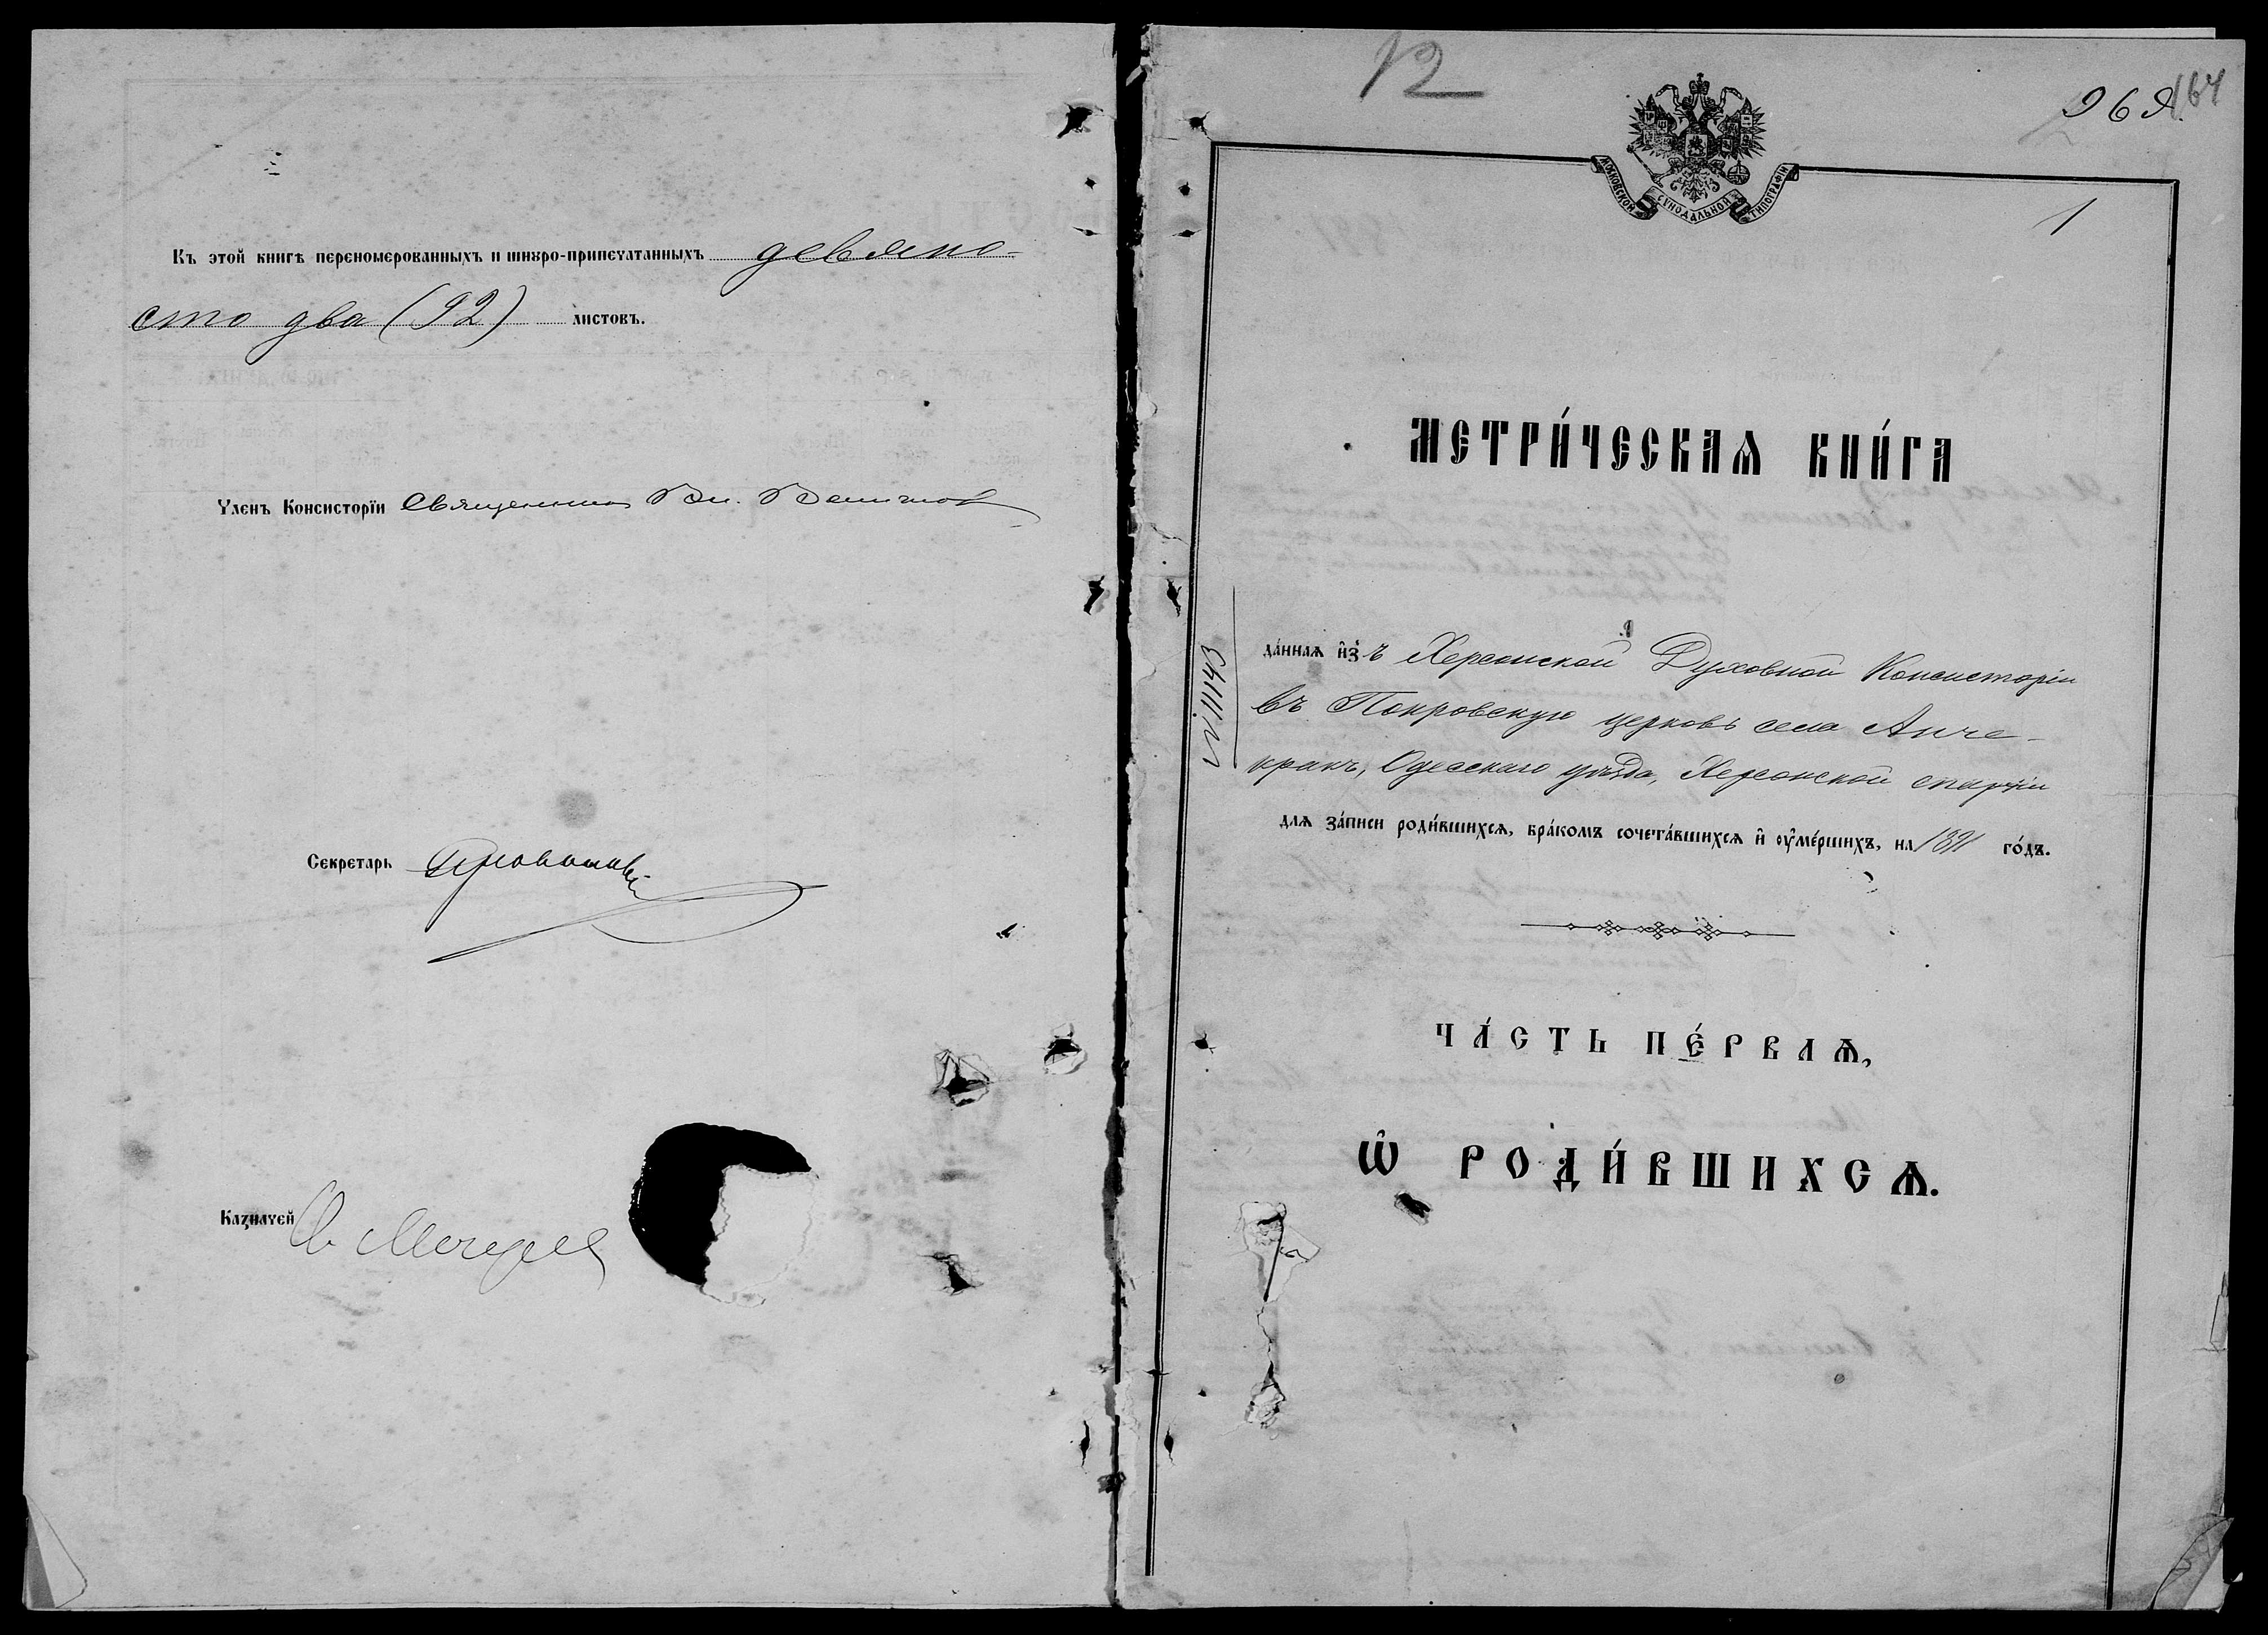 Къ этой книгѣ переномерованныхъ и шнуро-припечатанныхъ девяно-
сто два (92) листовъ.
Членъ Консисторїи Священникъ Вл.
Секретарь
Казначей Св.
12
164
МОСКОВСКОЙ СѴНОДАЛЬНОЙ ТИПОГРАФІИ
1
МЕТРИ́ЧЕСКАѦ КНИ́ГА
№ 11143
да́ннаѧ и҆зъ Херсонской Духовной Консисторіи
въ Покровскую церковь села Анче-
кракъ, Одесскаго уѣзда, Херсонской епархіи
длѧ за́писи роди́вшихсѧ, бра́комъ сочета́вшихсѧ и҆ ᲂу҆ме́ршихъ, на 1891 го́дъ.
ЧА́СТЬ ПЕ́РВАѦ,
Ѡ҆ РОДИ́ВШИХСѦ.